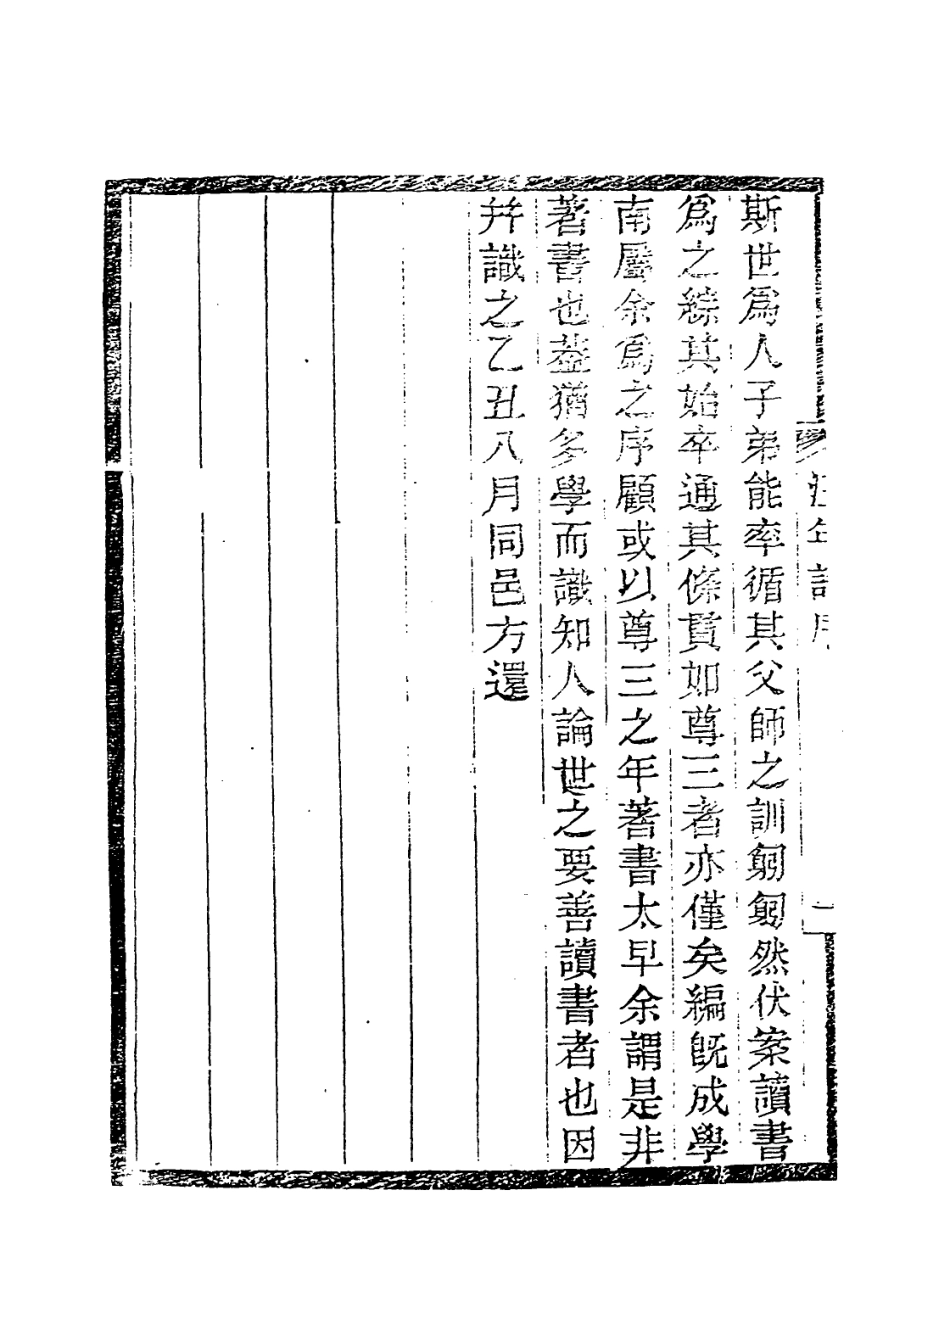 斯世爲人子弟能率循其父師之訓匑匑然伏案讀書
爲之綜其始卒通其條貫如尊三者亦僅矣編旣成學
南屬余爲之序顧或以尊三之年著書太早余謂是非
著書也葢猶多學而識知人論世之要善讀書者也因
幷識之乙丑八月同邑方還
一